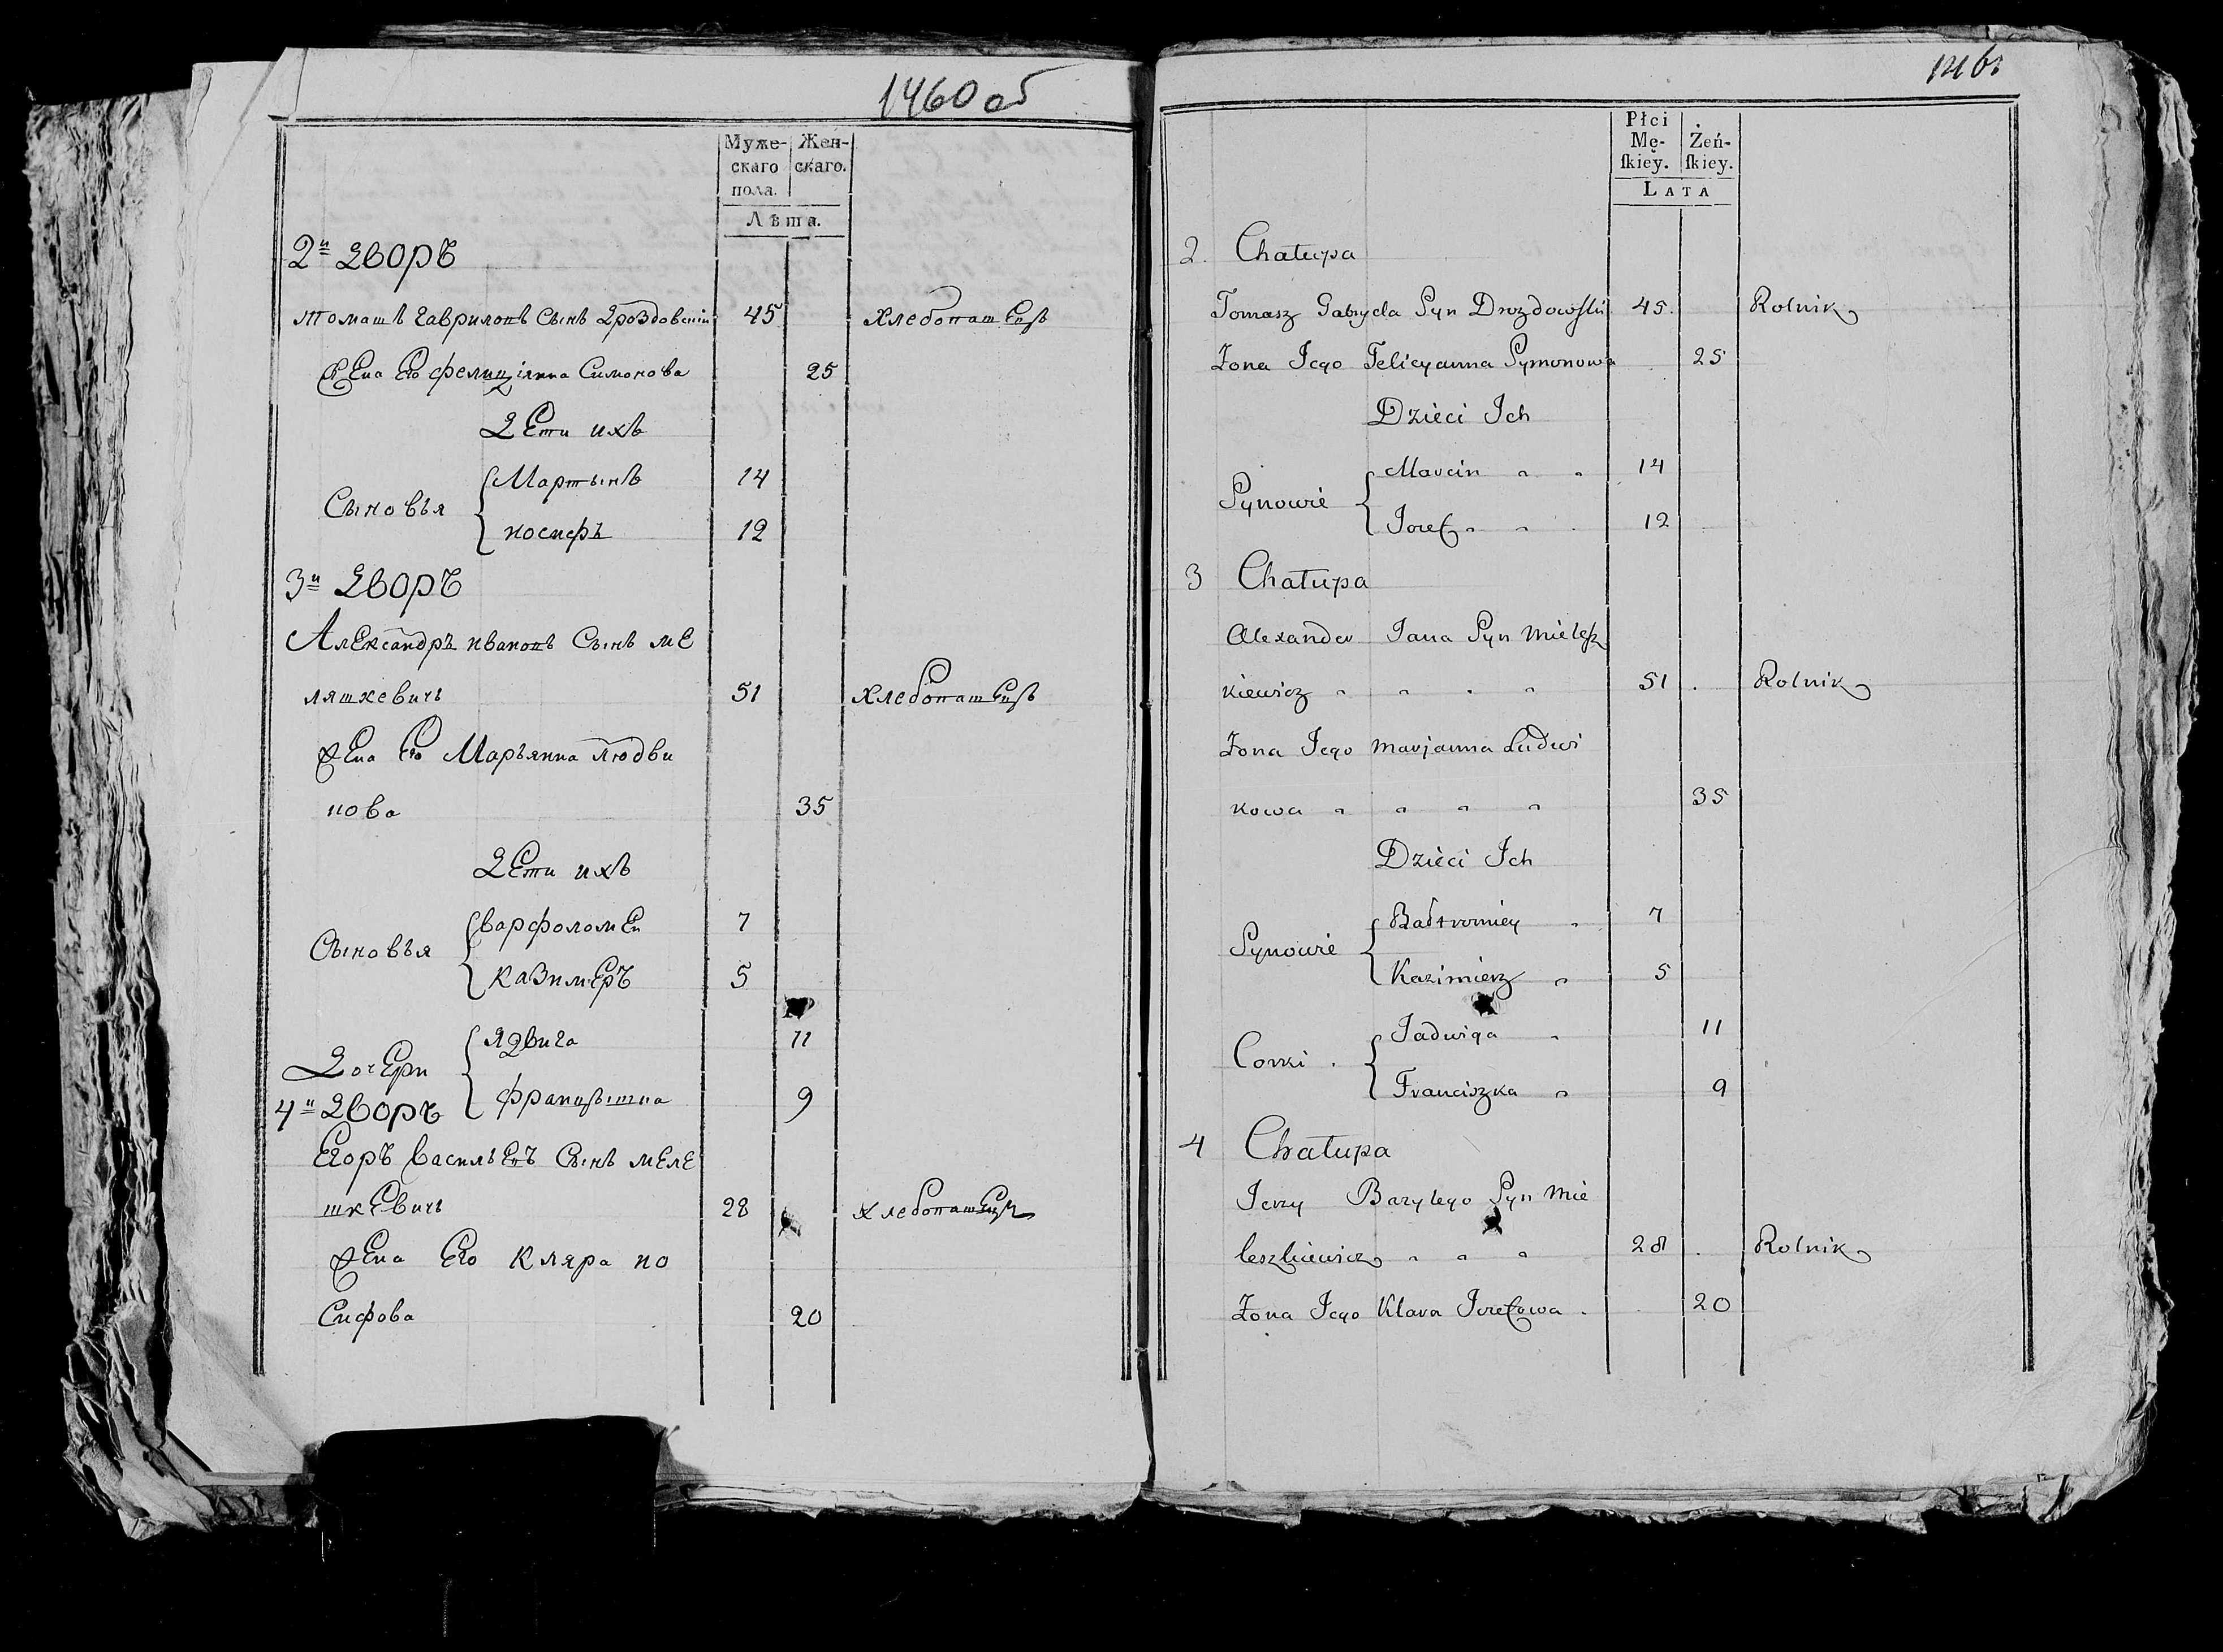 1460 об
Муже-
скаго
пола.
Жен-
скаго.
Лѣта.
2й Дворъ
Томашъ Гавриловъ Сынъ Дроздовскій 45 Хлебопашецъ
Жена Его Фелиціянна Симонова 25
Дети ихъ
Сыновья
Мартынъ 14
Иосифъ 12
3й Дворъ
Александръ Ивановъ Сынъ Ме
ляшкевичъ 51 Хлебопашецъ
Жена Его Марьянна Людви
кова 35
Дети ихъ
Сыновья
Варфоломей 7
Казимеръ 5
Дочери
Ядвига 11
Францишка 9
4й Дворъ
Егоръ Васильевъ Сынъ Меле
шкевичъ 28 Хлебопашецъ
Жена Его Кляра Ио
сифова 20
1461
Płci
Mę-
ſkiey.
Żeń-
ſkiey.
Lata
2. Chałupa
Tomasz Gabryela Syn Drozdowski 45. Rolnik
Żona Jego Felicyanna Symonowa 25
Dzieci Ich
Synowie
Marcin " " 14
Jozef " " 12
3 Chałupa
Alexander Jana Syn Mielesz
kiewicz " " " " 51 Rolnik
Żona Jego Marjanna Ludwi
kowa " " " " 35
Dzieci Ich
Synowie
Bałtromiey " 7
Kazimierz " 5
Corki
Jadwiga " 11
Franciszka " 9
4 Chałupa
Jerzy Bazylego Syn Mie
leszkiewicz " " " 28 Rolnik
Żona Jego Klara Jozefowa 20